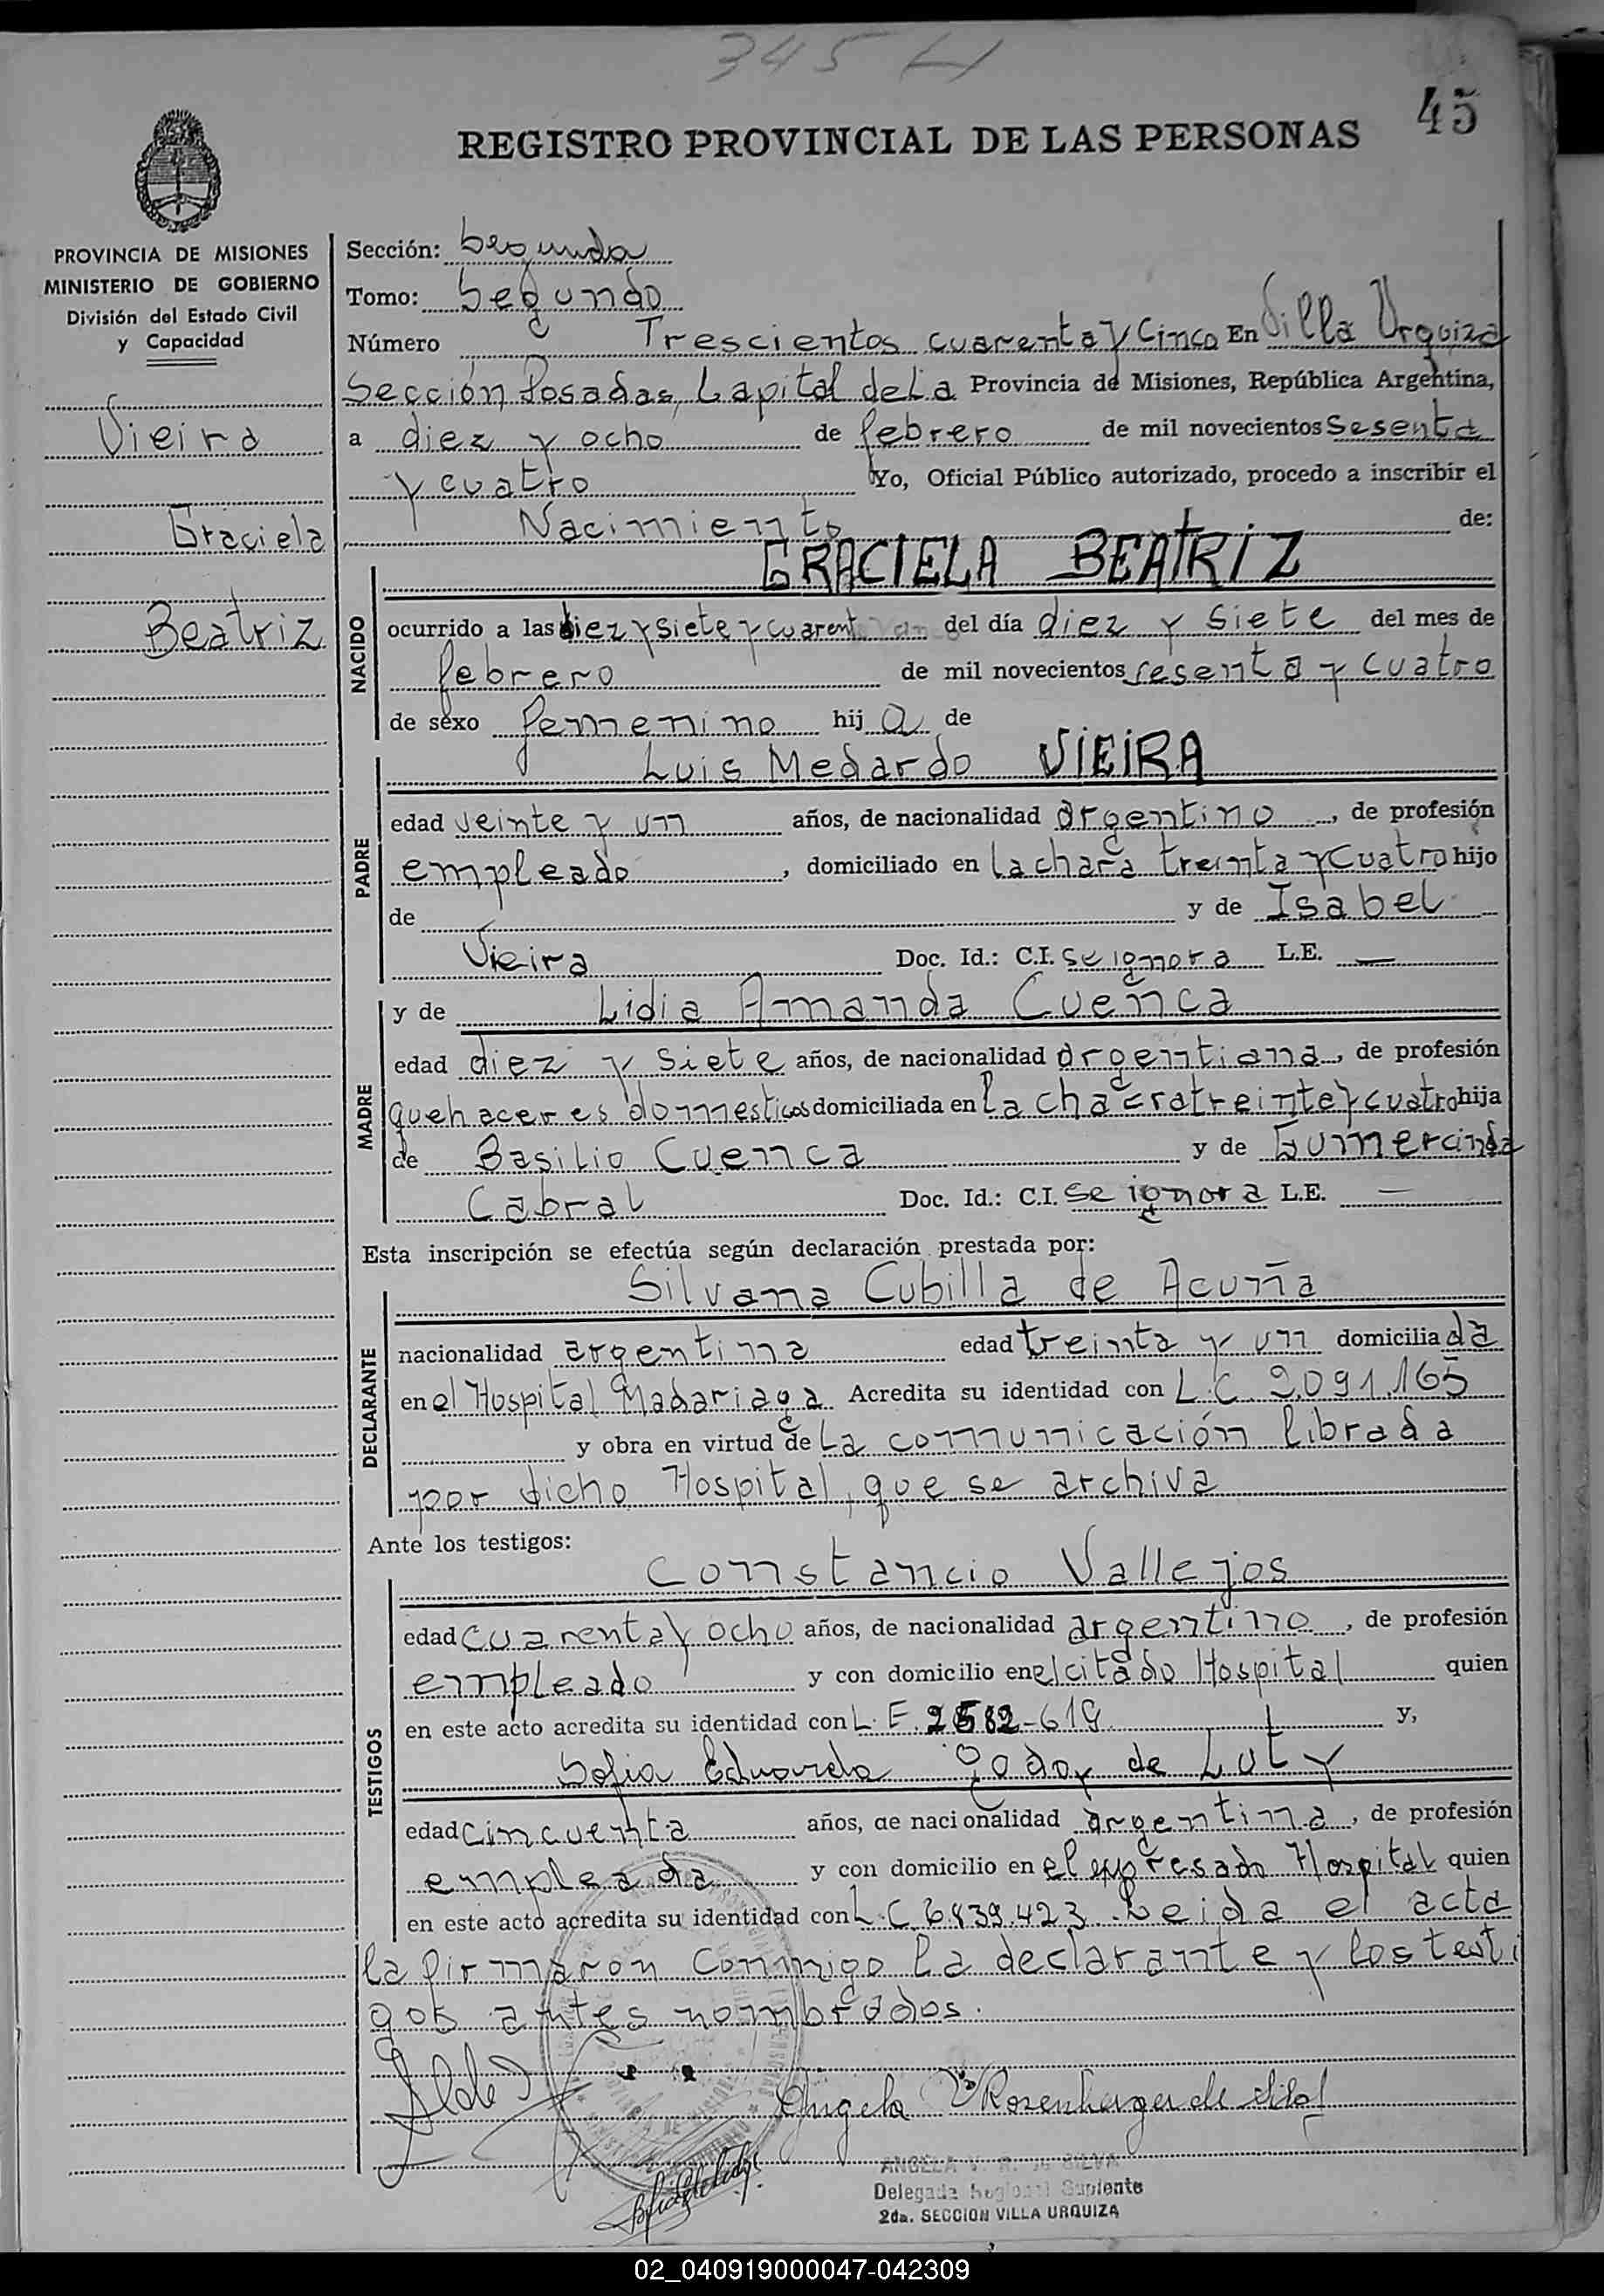 345
45
REGISTRO PROVINCIAL DE LAS PERSONAS
PROVINCIA DE MISIONES
MINISTERIO DE GOBIERNO
División del Estado Civil
y Capacidad
Vieira
Graciela
Beatriz
Sección: Segunda
Tomo: Segundo
Número Trescientos cuarenta y Cinco En Villa Urquiza
Sección Posadas, Capital de La Provincia de Misiones, República Argentina,
a diez y ocho de febrero de mil novecientos Sesenta
y cuatro Yo, Oficial Público autorizado, procedo a inscribir el
Nacimiento de:
GRACIELA BEATRIZ
NACIDO
ocurrido a las diez y siete y cuarent del día diez y siete del mes de
febrero de mil novecientos sesenta y cuatro
de sexo femenino hij a de
Luis Medardo VIEIRA
PADRE
edad veinte y un años, de nacionalidad argentino, de profesión
empleado, domiciliado en La chara treinta y cuatro hijo
de y de Isabel
Vieira Doc. Id.: C.I. se ignora L.E. —
MADRE
y de Lidia Amanda Cuenca
edad diez y siete años, de nacionalidad argentiana, de profesión
quehaceres domesticos domiciliada en la chacra treinte y cuatro hija
de Basilio Cuenca y de Gumercinda
Cabral Doc. Id.: C.I. se ignora L.E. —
Esta inscripción se efectúa según declaración prestada por:
Silvana Cubilla de Acuña
DECLARANTE
nacionalidad argentina edad treinta y un domiciliada
en el Hospital Madariaga Acredita su identidad con L.C 2.091.165
y obra en virtud de La comunicación librada
por dicho Hospital, que se archiva
Ante los testigos:
Constancio Vallejos
TESTIGOS
edad cuarenta y ocho años, de nacionalidad argentino, de profesión
empleado y con domicilio en el citado Hospital quien
en este acto acredita su identidad con L.E. 2582-619 y,
Sofia Eduarda Godoy de Luty
edad cincuenta años, de nacionalidad argentina, de profesión
empleada y con domicilio en el expresado Hospital quien
en este acto acredita su identidad con L.C 6.839.423. Leida el acta
la firmaron conmigo la declarante y los testi
gos antes nombrados.
Angela V. Rosenberger de Silva
ANGELA V. R. de SILVA
Delegada Regional Suplente
2da. SECCION VILLA URQUIZA
02_040919000047-042309